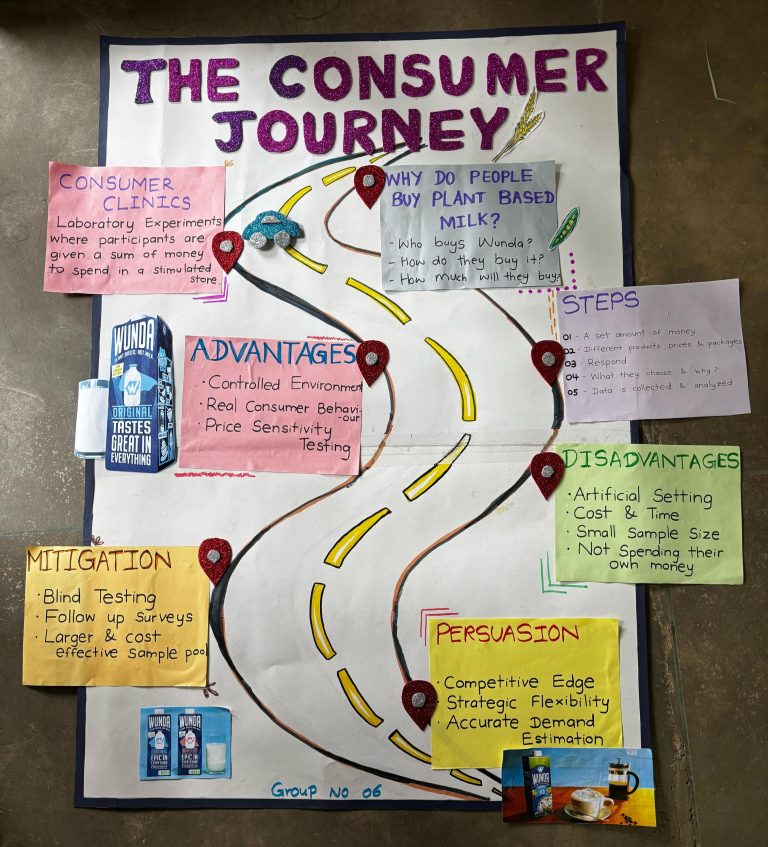 THE CONSUMER
JOURNEY
CONSUMER
CLINICS
Laboratory Experiments
where participants are
given a sum of money
to spend in a stimulated
store.
WHY DO PEOPLE
BUY PLANT BASED
MILK?
- Who buys Wunda?
- How do they buy it?
- How much will they buy?
STEPS
01 - A set amount of money
02 - Different products prices & packages
03 - Respond
04 - What they choose & why?
05 - Data is collected & analyzed
ADVANTAGES
· Controlled Environment
· Real Consumer Behavi-
our
· Price Sensitivity
Testing
WUNDA
ORIGINAL
TASTES
GREAT IN
EVERYTHING
DISADVANTAGES
· Artificial Setting
· Cost & Time
· Small Sample Size
· Not Spending their
own money
MITIGATION
· Blind Testing
· Follow up Surveys
· Larger & cost
effective sample pool
PERSUASION
· Competitive Edge
· Strategic Flexibility
· Accurate Demand
Estimation
WUNDA
EPIC IN
EVERYTHING
WUNDA
EPIC IN
EVERYTHING
WUNDA
Group No 06